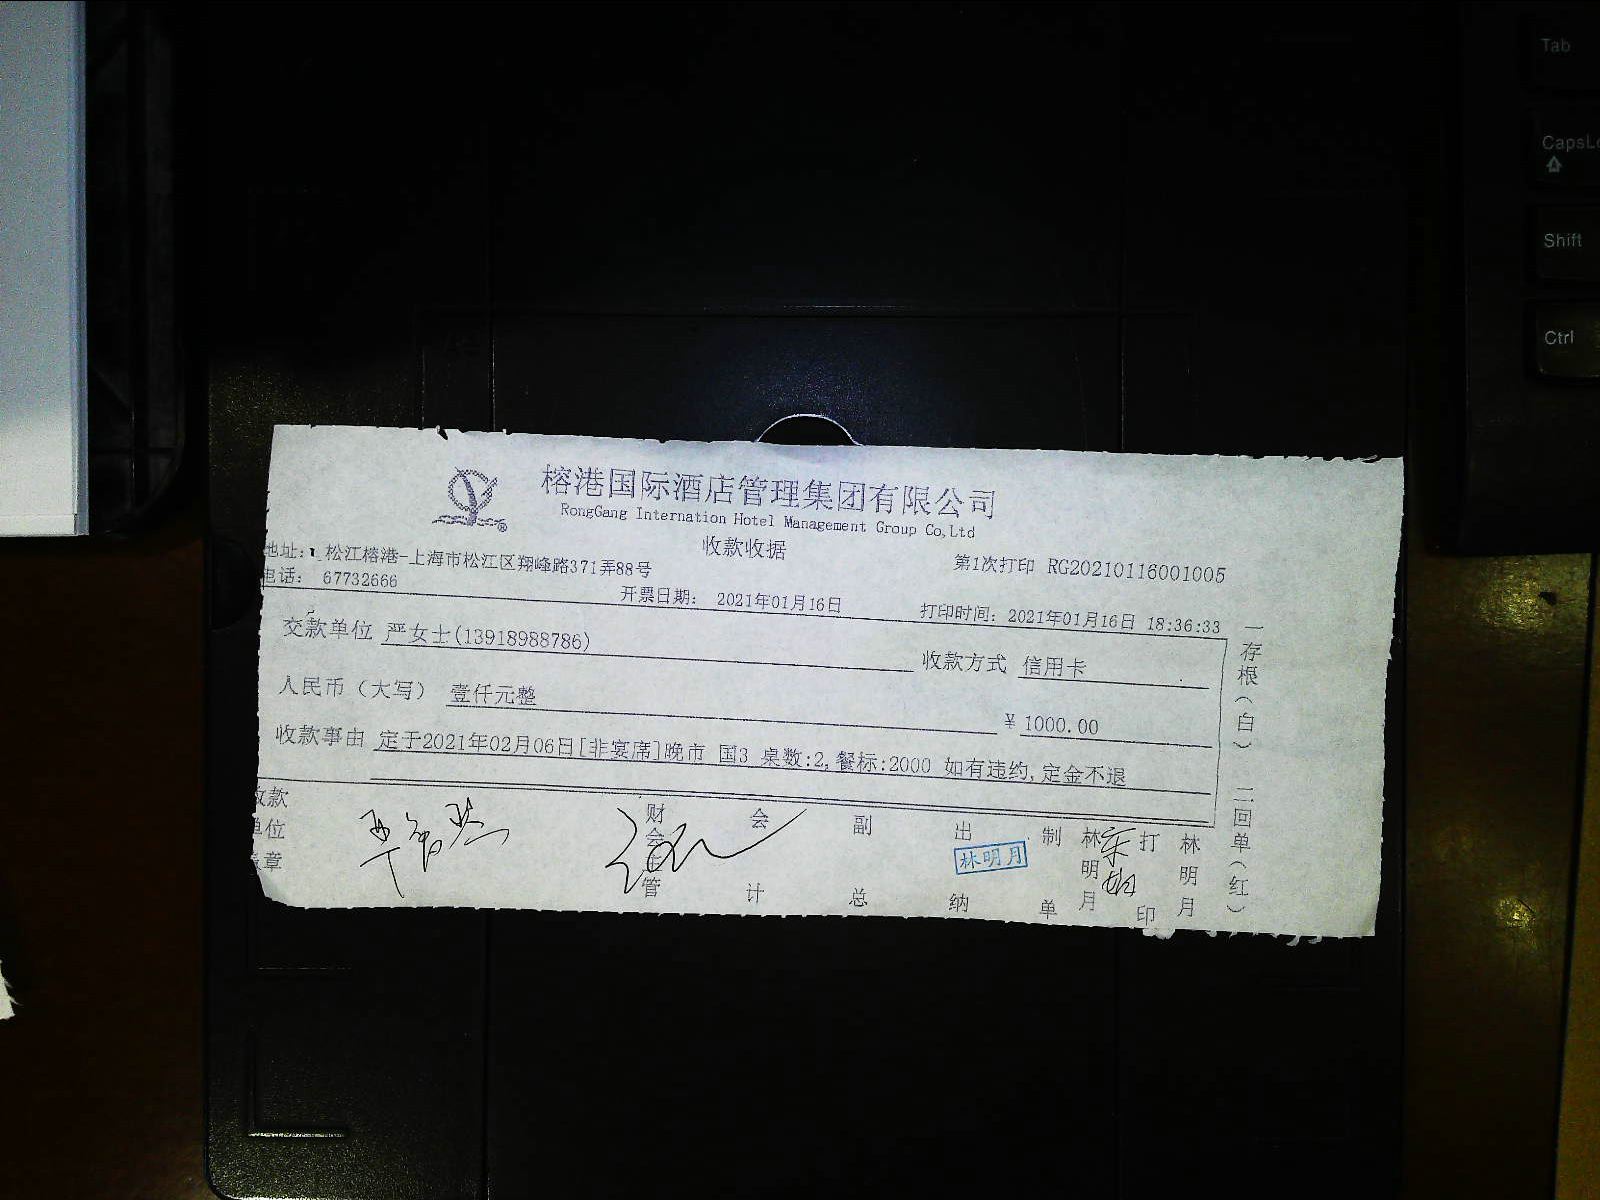 榕港国际酒店管理集团有限公司
RongGang Internation Hotel Management Group Co,Ltd
收款收据
地址: 松江榕港-上海市松江区翔峰路371弄88号
第1次打印 RG20210116001005
电话: 67732666
开票日期: 2021年01月16日
打印时间: 2021年01月16日 18:36:33
交款单位 严女士(13918988786)
收款方式 信用卡
人民币（大写） 壹仟元整
¥ 1000.00
收款事由 定于2021年02月06日[非宴席]晚市 国3 桌数:2,餐标:2000 如有违约,定金不退
收款单位盖章
财会主管
会计
副总
出纳
林明月
制单
林明月
打印
林明月
一存根（白） 二回单（红）
Tab
CapsLo
Shift
Ctrl